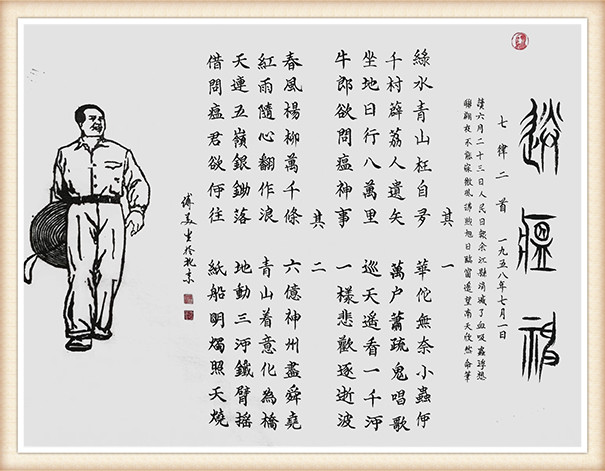 送瘟神
七律二首 一九五八年七月一日
讀六月二十三日人民日報余江縣消滅了血吸蟲浮想
聯翩夜不能寐微風拂煦旭日臨窗遥望南天欣然命筆
其一
綠水青山枉自多 華佗無奈小蟲何
千村薜荔人遺矢 萬户蕭疏鬼唱歌
坐地日行八萬里 巡天遥看一千河
牛郎欲問瘟神事 一樣悲歡逐逝波
其二
春風楊柳萬千條 六億神州盡舜堯
紅雨隨心翻作浪 青山着意化為橋
天連五嶺銀鋤落 地動三河鐵臂摇
借問瘟君欲何往 紙船明燭照天燒
於北京